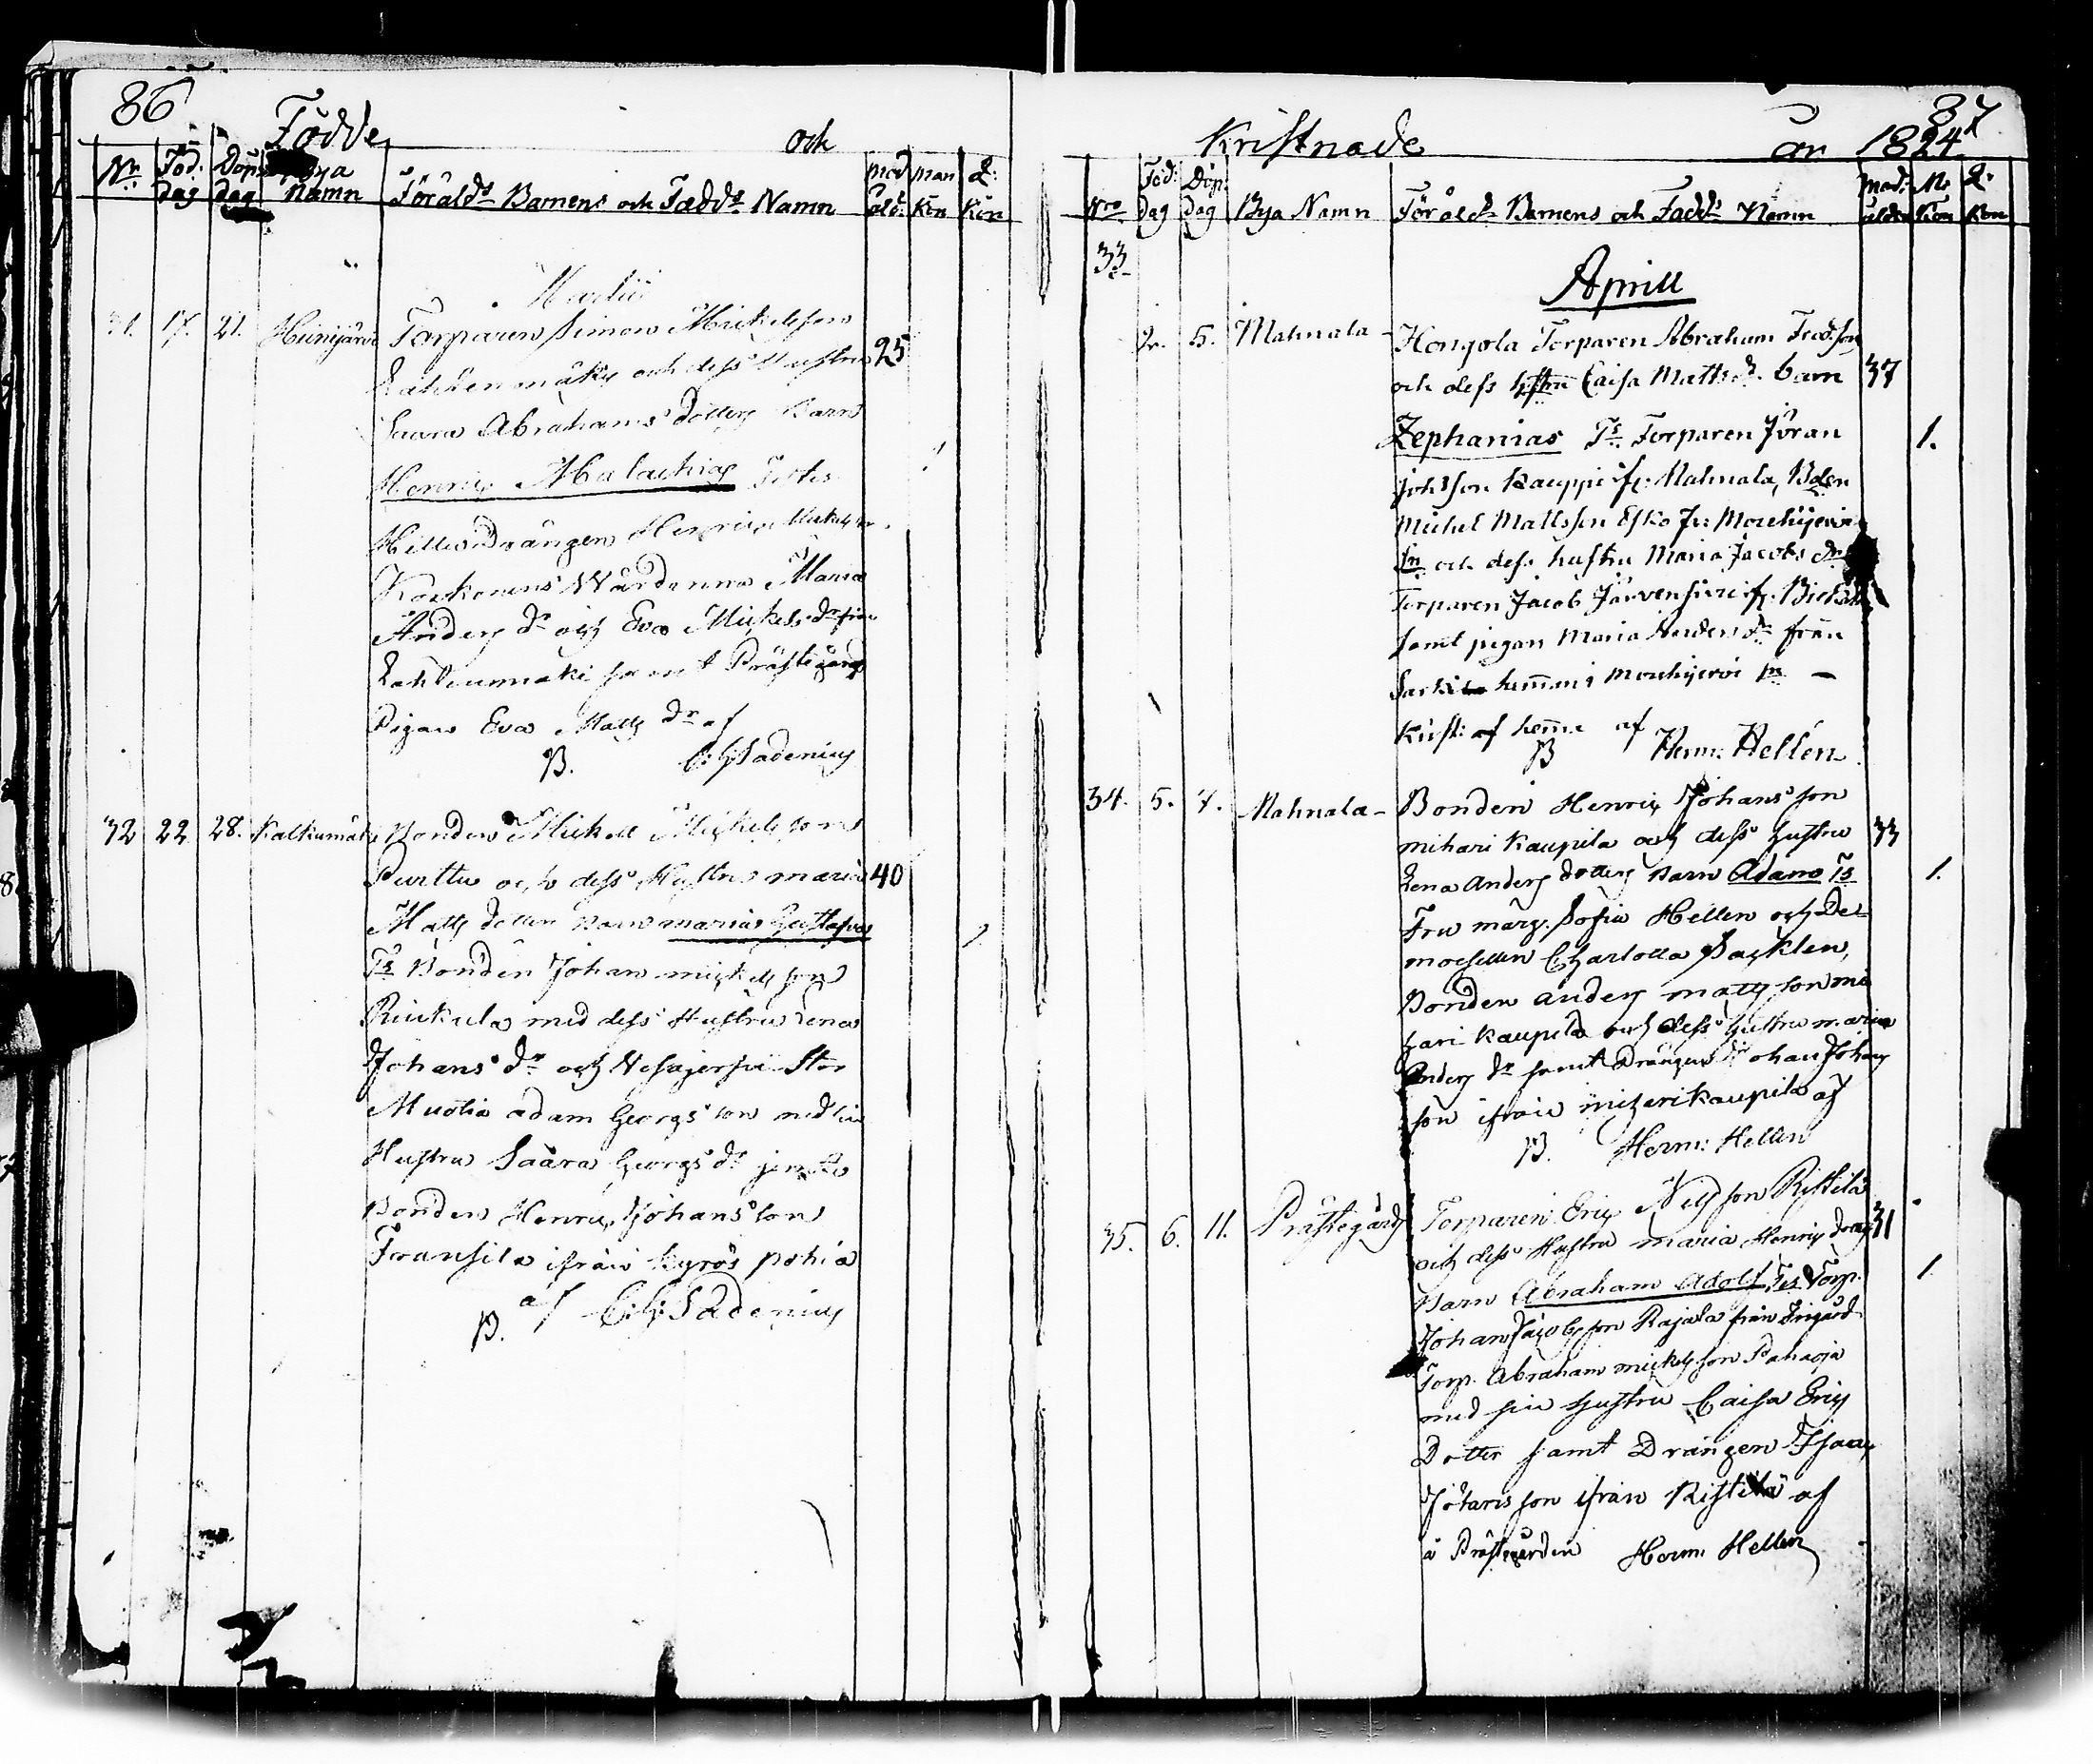 86
Födde och
Nr: Föd: Dag Döp: dag Bya Namn Föräld:s Barnens och Fadd:s Namn mod åld: man Kön Q: Kön
Martii
31. 17. 21. Heinijärvi Torparen Simon Mickelsson
Lähkenmäky och dess Hustru 25
Saara Abrahams dotters Barn
Henric Malachias Testes 1
Drängen Henric Mickelsson
Koskonens Wärdinna Maria
Anders dr och Eva Mickels dr från
samt Prästegårds
Pigan Eva Matts dr af
B. C: G: Sadenius
32 22 28. Kalkunmäki Bonden Mickell Mickelsson
Purttu och dess Hustru maria 40
Matts dotters barn maria Gustafva 1
Ts Bonden Johan mickelsson
Riukula med dess Hustru Lena
Johans dr och Vesajerfvi Stor
Muotia adam Georgs son med sin
Hustru Saara Georgs dr jemte
Bonden Henric Johans son
Fransila ifrån kyrös pohia
B. af C: G: Sadenius
87
Kristnade år 1824
Nro Föd: Dag Döp: Dag Bya Namn Föräld:s Barnens och Fadd:s Namn Mod: ålder M: Kön Q: Kön
33
Aprill
2. 5. Mahnala - Hongola Torparen Abraham Fredr:son
och dess hstru Caisa Matts dr. barn 37
Zephanias Ts. Torparen Jöran 1.
Joh:son Kauppi fr: Mahnala, Bden
Michel Mattsson Esko fr: Mouhijervi
Sn och dess hustru Maria Jacobs dr
Torparen Jacob Järvensivu fr.
samt pigan Maria Anders dr från
hemman i Mouhijervi sn —
Krist: af henne af
B Herm: Hellén
34. 5. 7. Mahnala - Bonden Henric Johans son
mihari Kaupila och dess hustru 33
Lena Anders dotters Barn Adam Ts 1.
Fru marg. Sofia Hellen och De-
moisellen Charlotta Sacklen,
Bonden anders matts son mi
hari kaupila och dess hustru maria
Anders dr samt Drängen Johan Johans
son ifrån miharikaupila af
B. Herm: Hellen
35. 6. 11. Prästegårds Torparen Eric Nilsson Ristilä
och dess Hustru maria Henrics dotters 31
Barn Abraham Adolf Tes Torp. 1
Johan Jacobsson Rajala från
Torp. Abraham mickelsson Pahaoja
med sin hustru Caisa Erics
Dotter samt Drängen Isaac
Johansson ifrån Ristilä af
å Prästegården Herm: Hellen